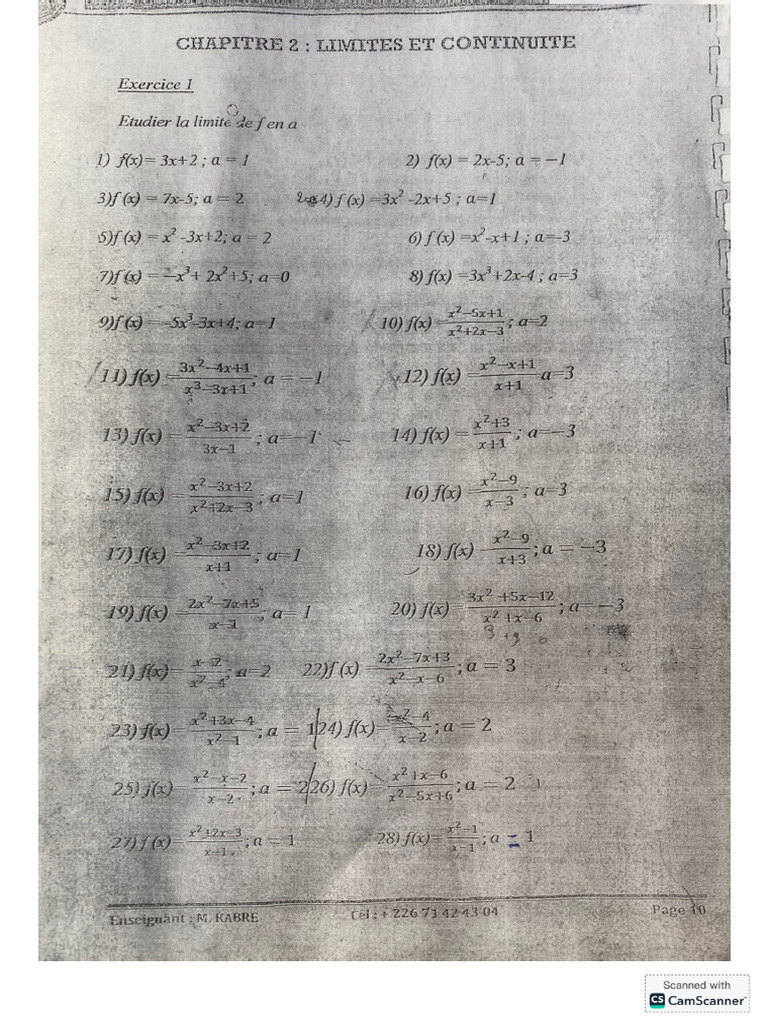 CHAPITRE 2 : LIMITES ET CONTINUITE
Exercice 1
Etudier la limite de f en a
1) f(x)= 3x+2 ; a = 1 2) f(x) = 2x-5; a = −1
3)f (x) = 7x-5; a = 2 4) f (x) =3x² -2x+5 ; a=1
5)f (x) = x² -3x+2; a = 2 6) f (x) =x²-x+1 ; a=-3
7)f (x) = −x³+ 2x²+5; a=0 8) f(x) =3x³+2x-4 ; a=3
9)f (x)= -5x³-3x+4; a=1 10) f(x)= (x²−5x+1)/(x²+2x−3) ; a=2
11) f(x) = (3x²−4x+1)/(x³−3x+1) ; a = −1 12) f(x) = (x²−x+1)/(x+1) a=3
13) f(x) = (x²−3x+2)/(3x−1) ; a=−1 14) f(x) = (x²+3)/(x+1) ; a=−3
15) f(x) = (x²−3x+2)/(x²+2x−3) ; a=1 16) f(x) = (x²−9)/(x−3) ; a=3
17) f(x) = (x²−3x+2)/(x+1) ; a=1 18) f(x) = (x²−9)/(x+3) ; a = −3
19) f(x) = (2x²−7x+5)/(x−1) ; a= 1 20) f(x)= (3x² +5x−12)/(x² +x−6) ; a= −3
21) f(x)= (x−2)/(x²−4) ; a=2 22)f (x) = (2x²−7x+3)/(x²−x−6) ; a = 3
23) f(x)= (x²+3x−4)/(x²−1) ; a = 1 24) f(x)= (x²−4)/(x−2) ; a = 2
25) f(x)= (x²−x−2)/(x−2) ; a = 2 26) f(x)= (x²+x−6)/(x²−5x+6) ; a = 2
27) f (x)= (x²+2x−3)/(x−1) ; a = 1 28) f(x)= (x²−1)/(x−1) ; a = 1
Enseignant : M. KABRE Cel : + 226 71 42 43 04 Page 10
Scanned with
CS CamScanner